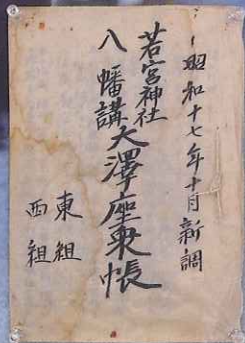 昭和十七年十月新調
若宮神社
八幡講大澤座衆帳
東組
西組